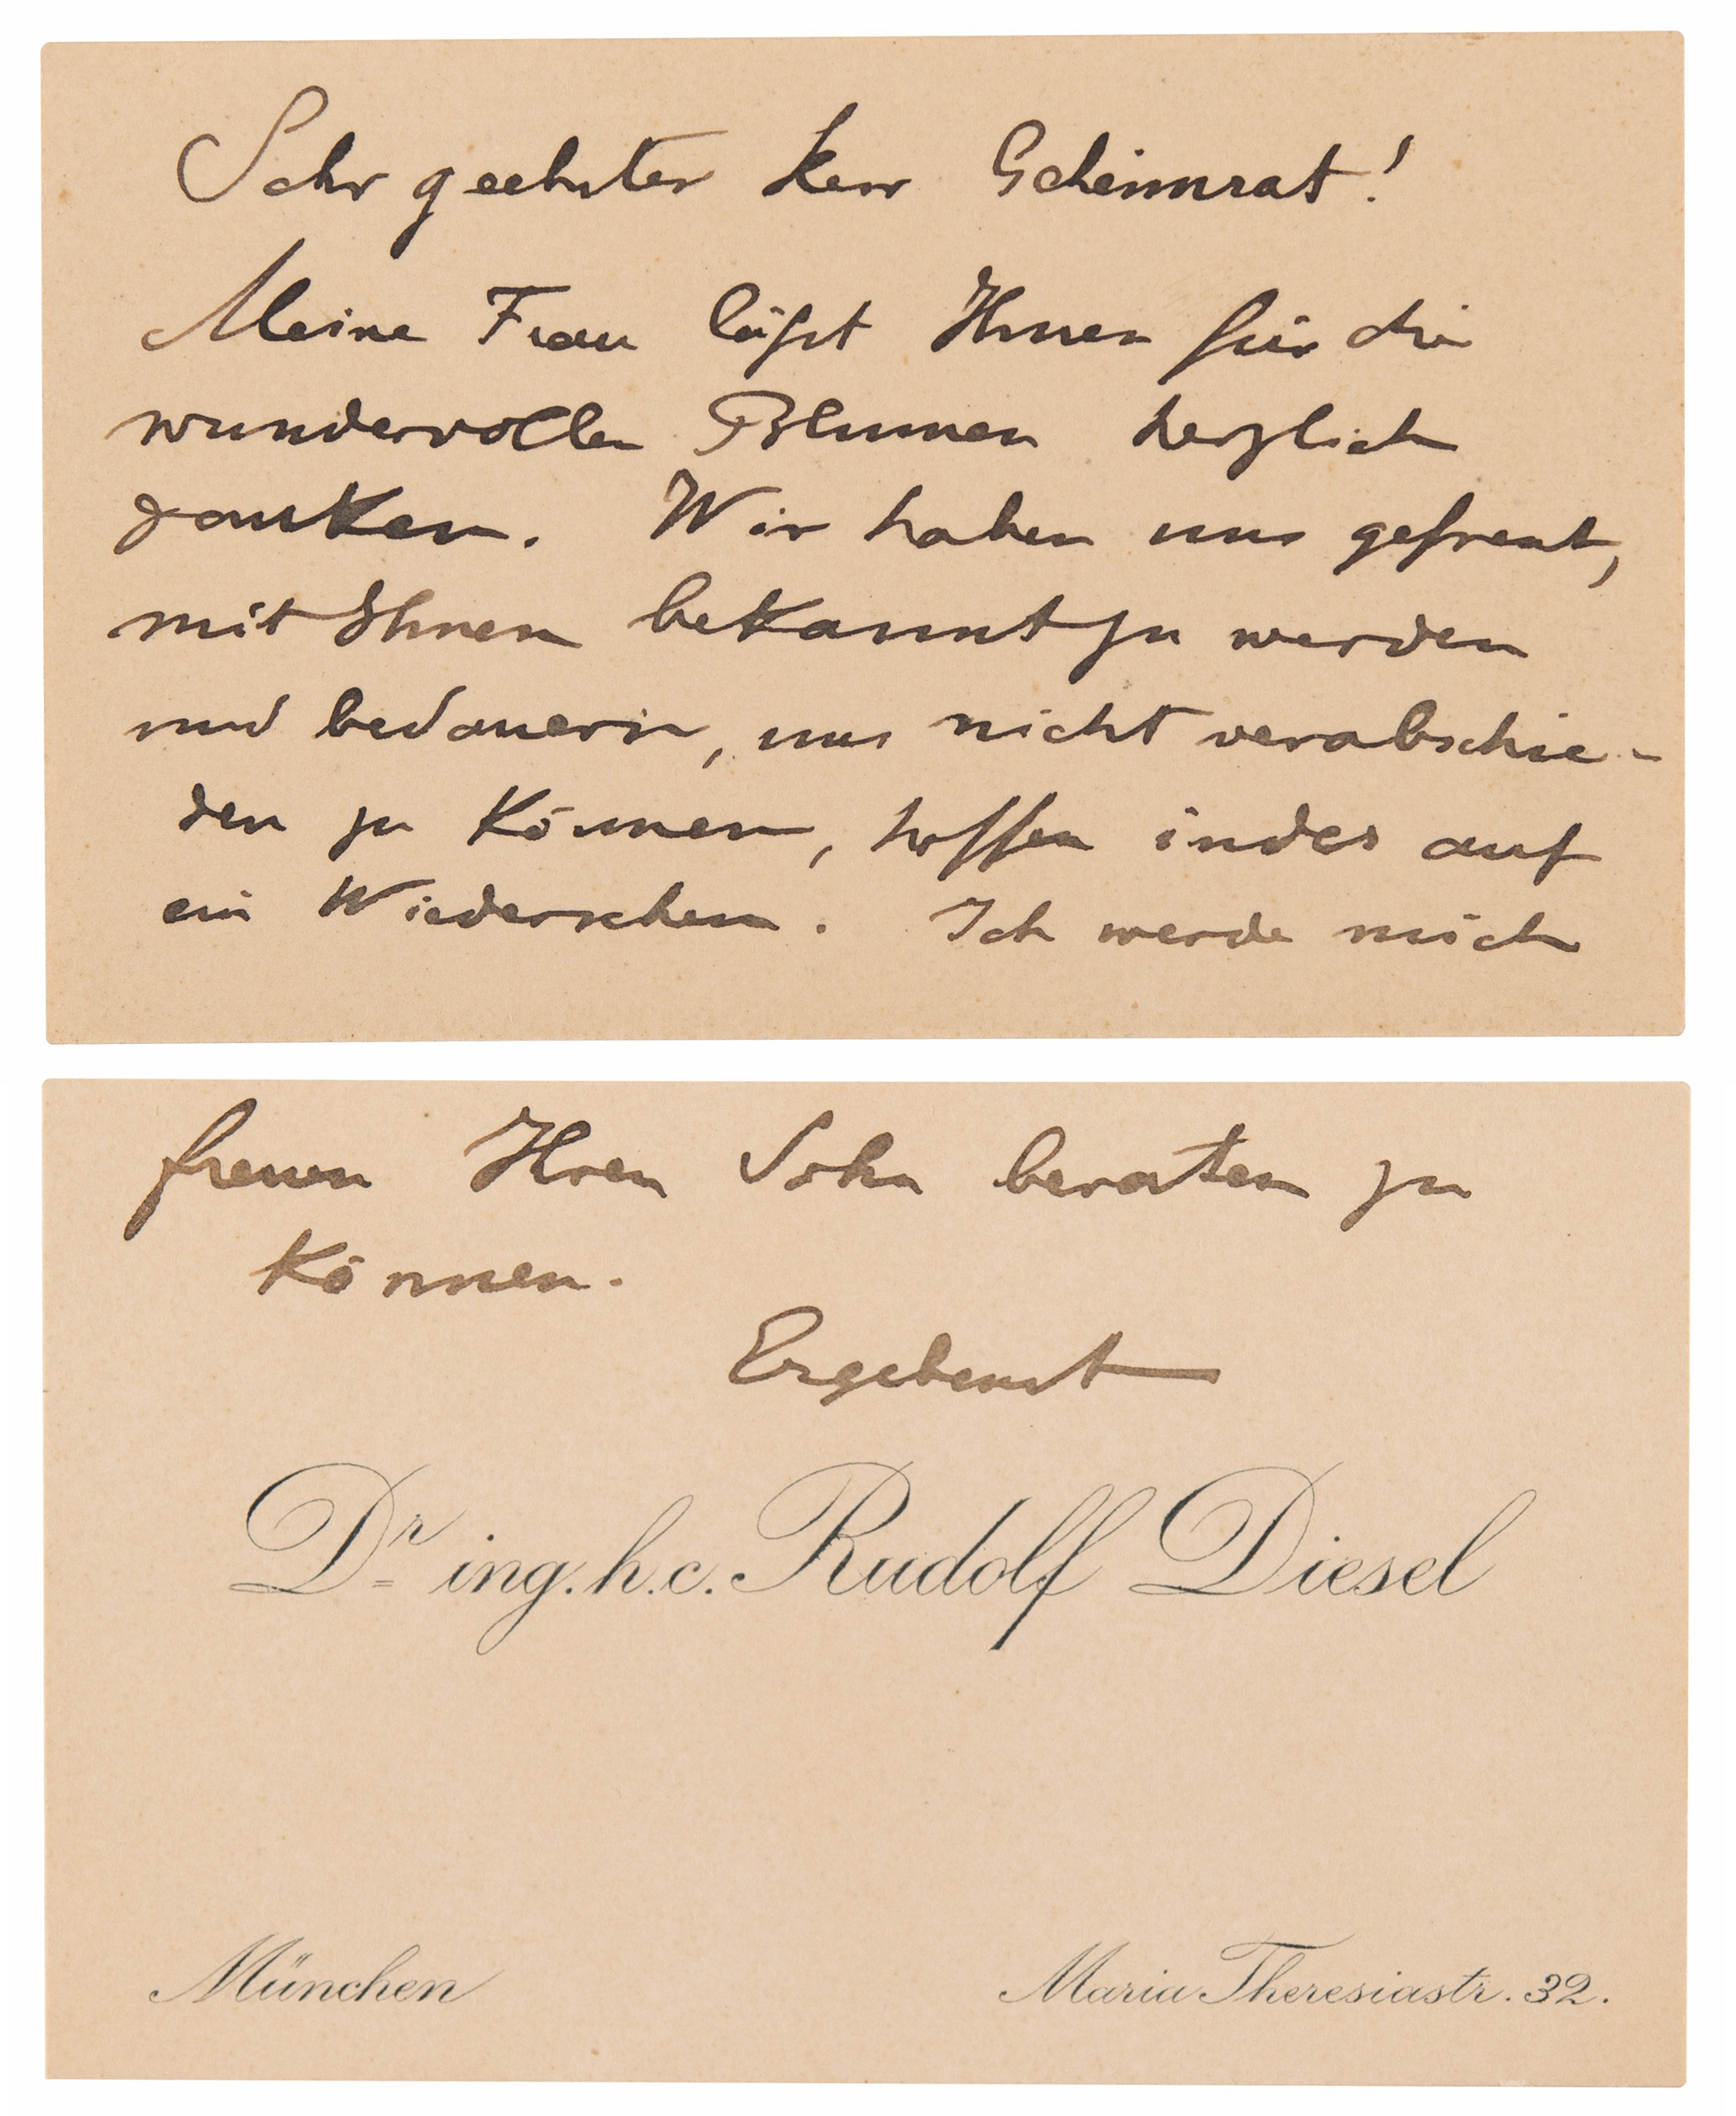 Sehr geehrter Herr Geheimrat!
Meine Frau läßt Ihnen für die
wundervollen Blumen herzlich
danken. Wir haben uns gefreut,
mit Ihnen bekannt zu werden
und bedauern, uns nicht verabschie-
den zu können, hoffen indes auf
ein Wiedersehen. Ich werde mich
freuen Ihren Sohn beraten zu
können.
Ergebenst
Dr. ing. h. c. Rudolf Diesel
München Maria Theresiastr. 32.